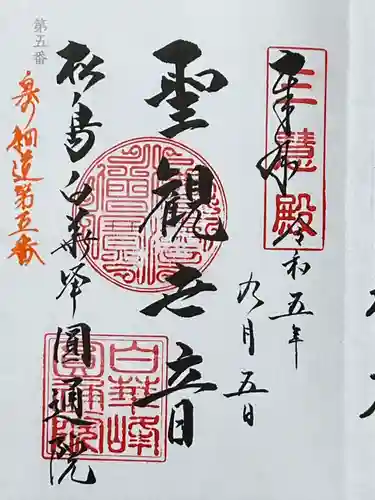 奉拝
三慧殿
令和五年
九月五日
聖観世音
松島白華峯圓通院
白華峰
圓通院
第五番
奥の細道第五番